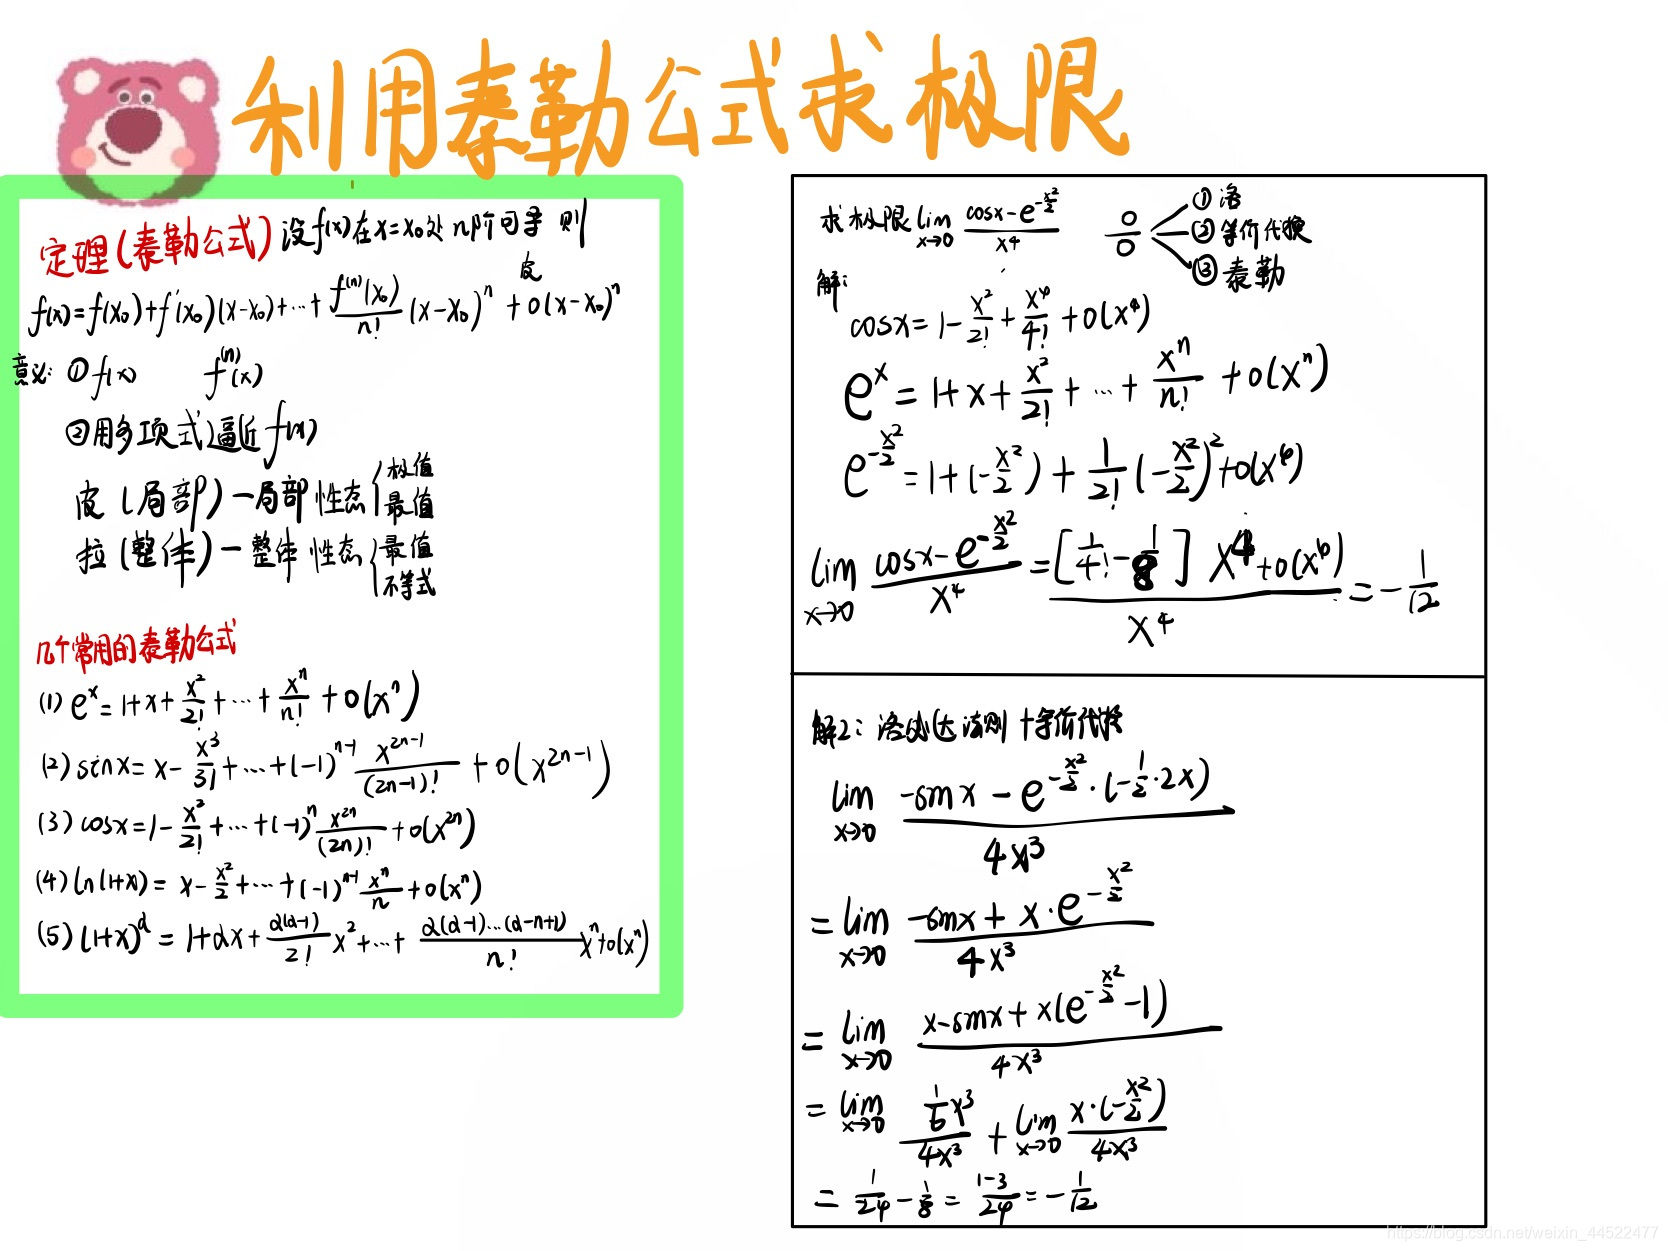 利用泰勒公式求极限
定理(泰勒公式) 设f(x)在x=x₀处n阶可导 则
皮
f(x)=f(x₀)+f'(x₀)(x-x₀)+…+f⁽ⁿ⁾(x₀)/n! (x-x₀)ⁿ+o(x-x₀)ⁿ
意义: ①f(x) f⁽ⁿ⁾(x)
②用多项式逼近f(x)
皮(局部)—局部性态{极值
最值
拉(整体)—整体性态{最值
不等式
几个常用的泰勒公式
(1) eˣ=1+x+x²/2!+…+xⁿ/n!+o(xⁿ)
(2) sinx=x-x³/3!+…+(-1)ⁿ⁻¹ x²ⁿ⁻¹/(2n-1)!+o(x²ⁿ⁻¹)
(3) cosx=1-x²/2!+…+(-1)ⁿ x²ⁿ/(2n)!+o(x²ⁿ)
(4) ln(1+x)=x-x²/2+…+(-1)ⁿ⁻¹ xⁿ/n+o(xⁿ)
(5) (1+x)^α=1+αx+α(α-1)/2! x²+…+α(α-1)…(α-n+1)/n! xⁿ+o(xⁿ)
求极限 lim x→0 (cosx-e^(-x²/2))/x⁴ 0/0 ①洛
②等价代换
③泰勒
解:
cosx=1-x²/2!+x⁴/4!+o(x⁴)
eˣ=1+x+x²/2!+…+xⁿ/n!+o(xⁿ)
e^(-x²/2)=1+(-x²/2)+1/2!(-x²/2)²+o(x⁴)
lim x→0 (cosx-e^(-x²/2))/x⁴=([1/4!-1/8]x⁴+o(x⁶))/x⁴=-1/12
解2: 洛必达法则+等价代换
lim x→0 (-sinx-e^(-x²/2)·(-1/2·2x))/4x³
=lim x→0 (-sinx+x·e^(-x²/2))/4x³
=lim x→0 (x-sinx+x(e^(-x²/2)-1))/4x³
=lim x→0 (1/6 x³)/4x³+lim x→0 (x·(-x²/2))/4x³
=1/24-1/8=(1-3)/24=-1/12
https://blog.csdn.net/weixin_44522477